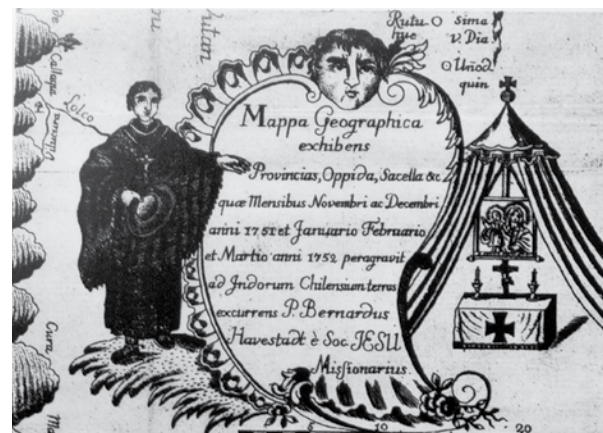 Rutu
hue
Sima
v. Dia
Uñod
quin
Callaqui
Lolco
Cura
Mappa Geographica
exhibens
Provincias, Oppida, Sacella &c.
quæ Mensibus Novembri ac Decembri
anni 1751 et Januario Februario
et Martio anni 1752 peragravit
ad Indorum Chilensium terras
excurrens P. Bernardus
Havestadt è Soc. JESU
Missionarius.
5
20